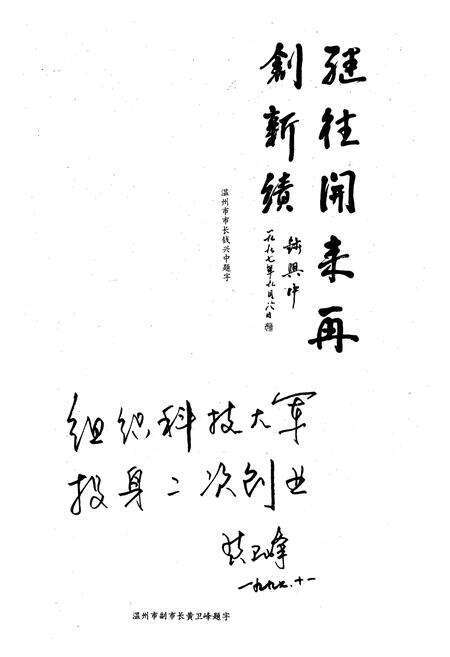 继往開来再
創新績
钱興中
一九九七年九月八日
温州市市长钱兴中题字
组织科技大军
投身二次创业
黄卫峰
一九九七.十一
温州市副市长黄卫峰题字